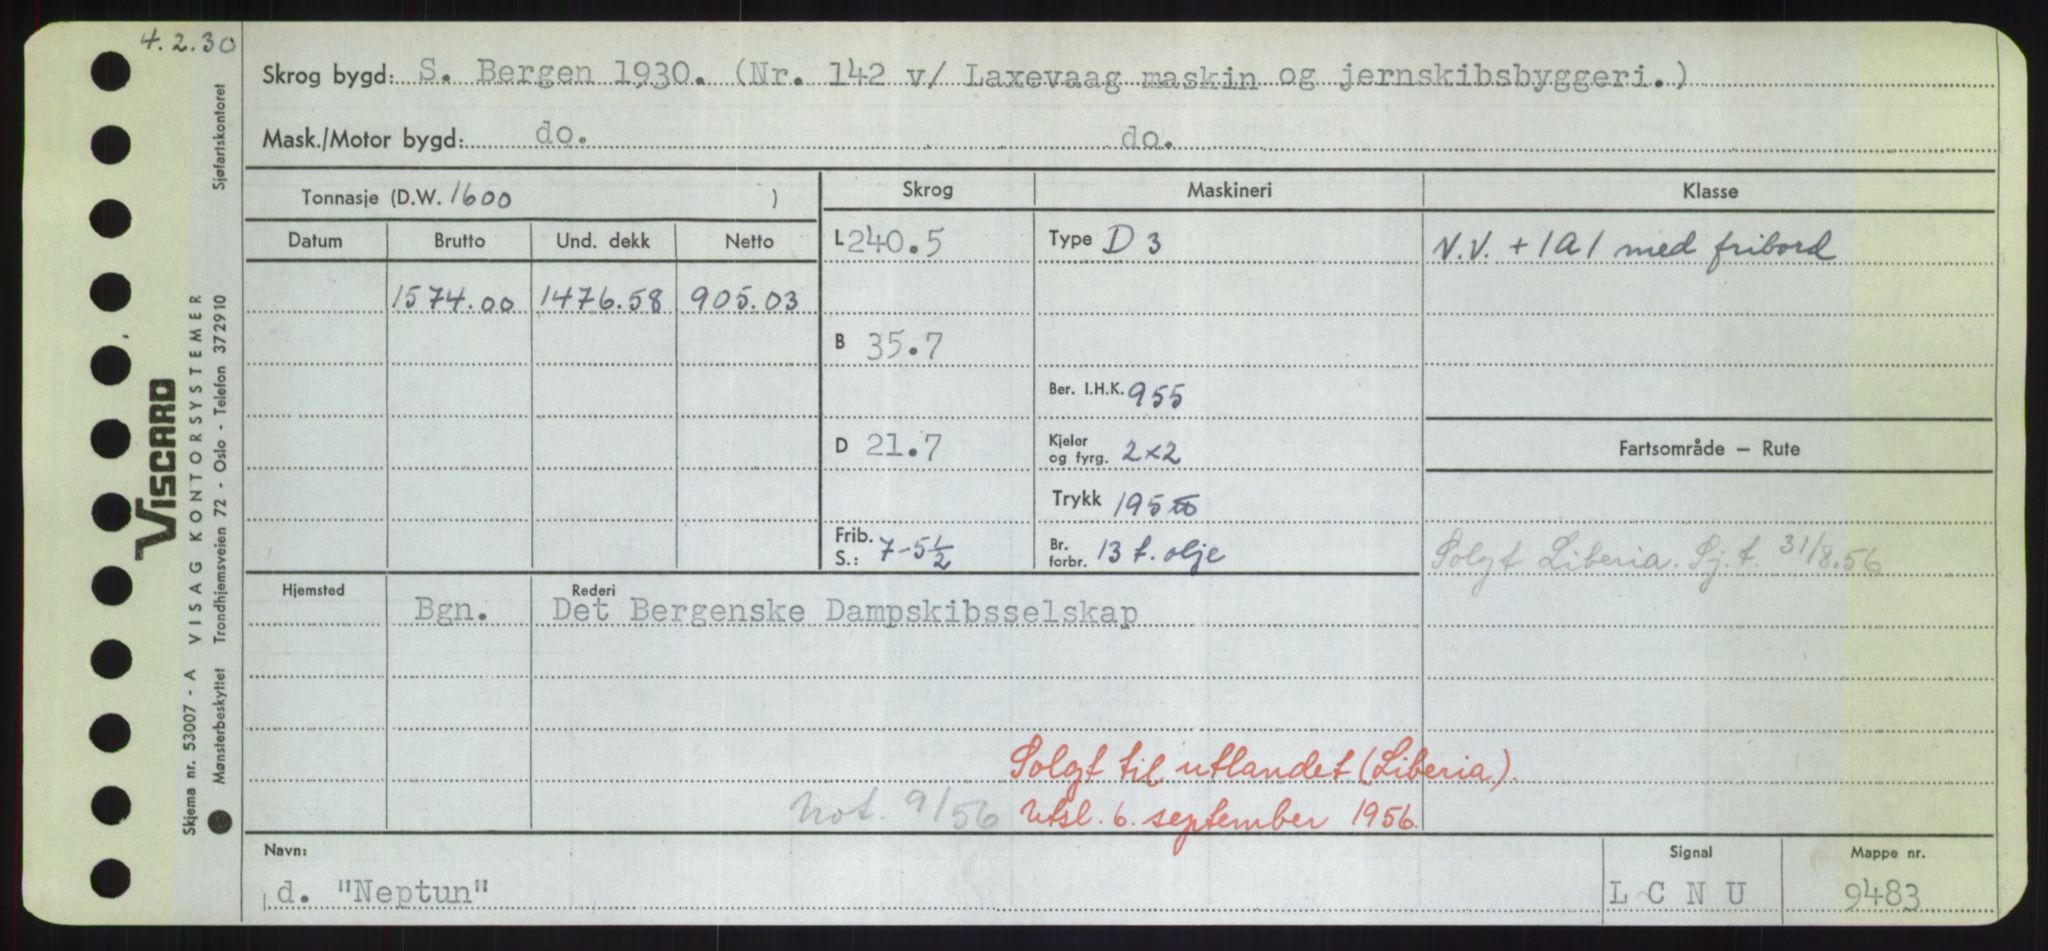 4.2.30
Skrog bygd: S. Bergen 1930. (Nr. 142 v/ Laxevaag maskin og jernskibsbyggeri.)
Mask./Motor bygd: do. do.
Tonnasje (D.W. 1600 ) Skrog Maskineri Klasse
Datum Brutto Und. dekk Netto L 240.5 Type D 3 N.V. + 1A1 med fribord
1574.00 1476.58 905.03
B 35.7
Ber. I.H.K. 955
D 21.7 Kjeler og fyrg. 2x2 Fartsområde — Rute
Trykk 195
Frib. S.: 7-5½ Br. forbr. 13 t. olje Solgt Liberia. Sj.t. 31/8.56
Hjemsted Rederi
Bgn. Det Bergenske Dampskibsselskap
Solgt til utlandet (Liberia).
Not. 9/56 Utsl. 6. september 1956.
Navn: Signal Mappe nr.
d. "Neptun" L C N U 9483
VISCARD
Skjema nr. 53007 - A VISAG KONTORSYSTEMER
Mønsterbeskyttet Trondhjemsveien 72 - Oslo - Telefon 372910 Sjøfartskontoret